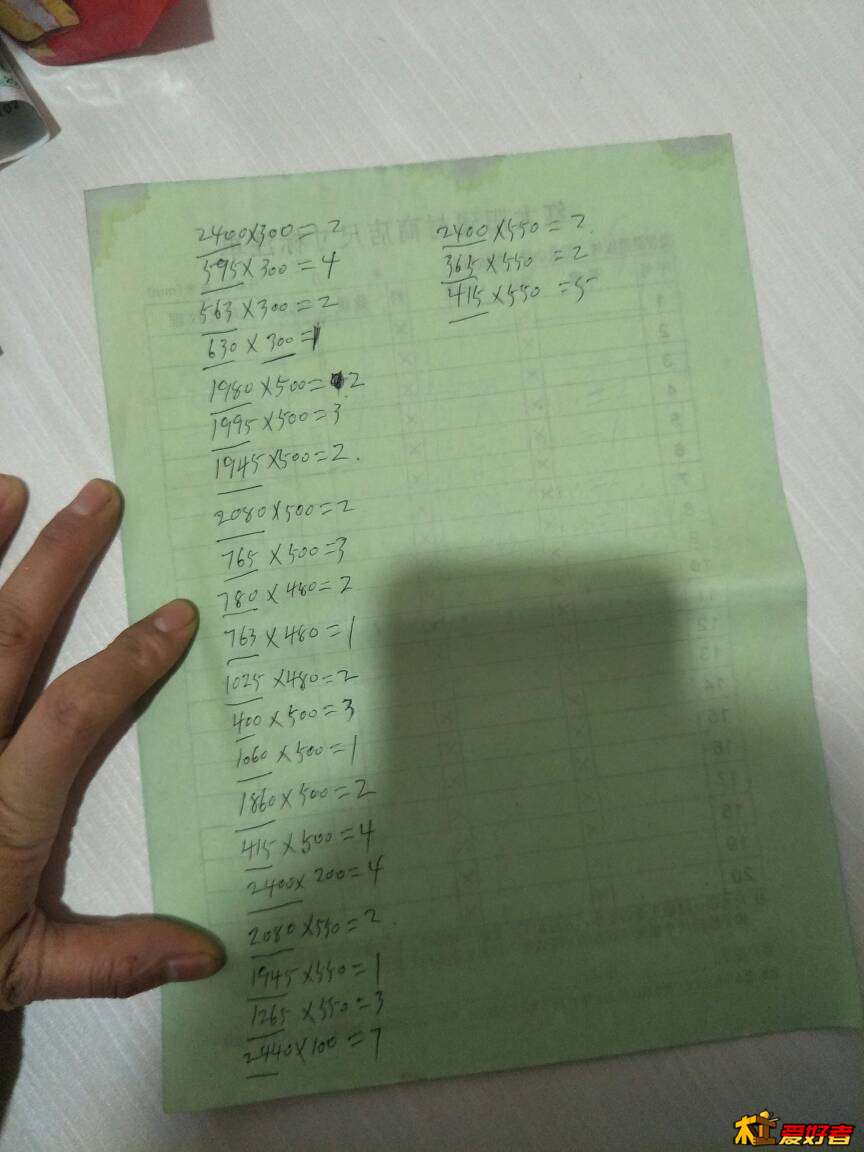 2400×300=2
595×300=4
563×300=2
630×300=1
1980×500=2
1995×500=3
1945×500=2.
2080×500=2
765×500=3
780×480=2
763×480=1
1025×480=2
400×500=3
1060×500=1
1860×500=2
415×500=4
2400×200=4
2080×550=2.
1945×550=1
1265×550=3
2440×100=7
2400×550=2.
365×550=2
415×550=5
杠爱好者